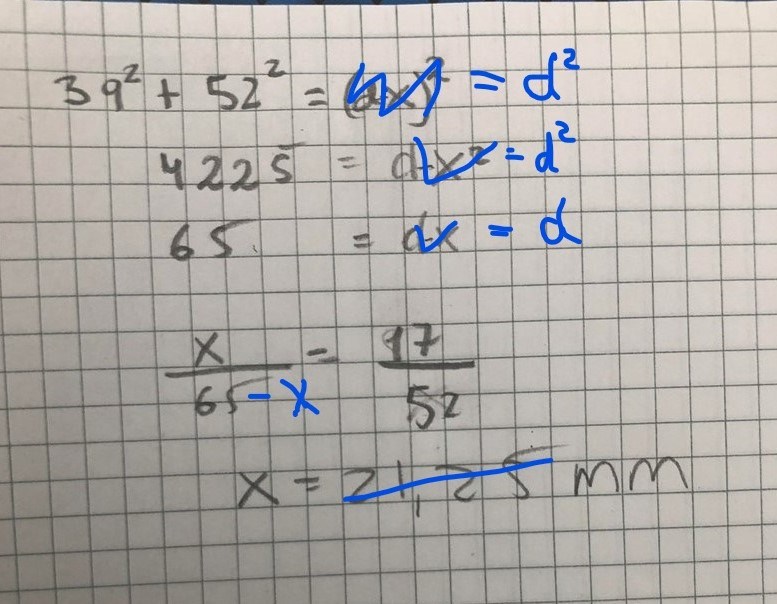 39² + 52² = (dx)² = d²
4225 = dx² = d²
65 = dx = d
x/65 - x = 17/52
x = 21,25 mm